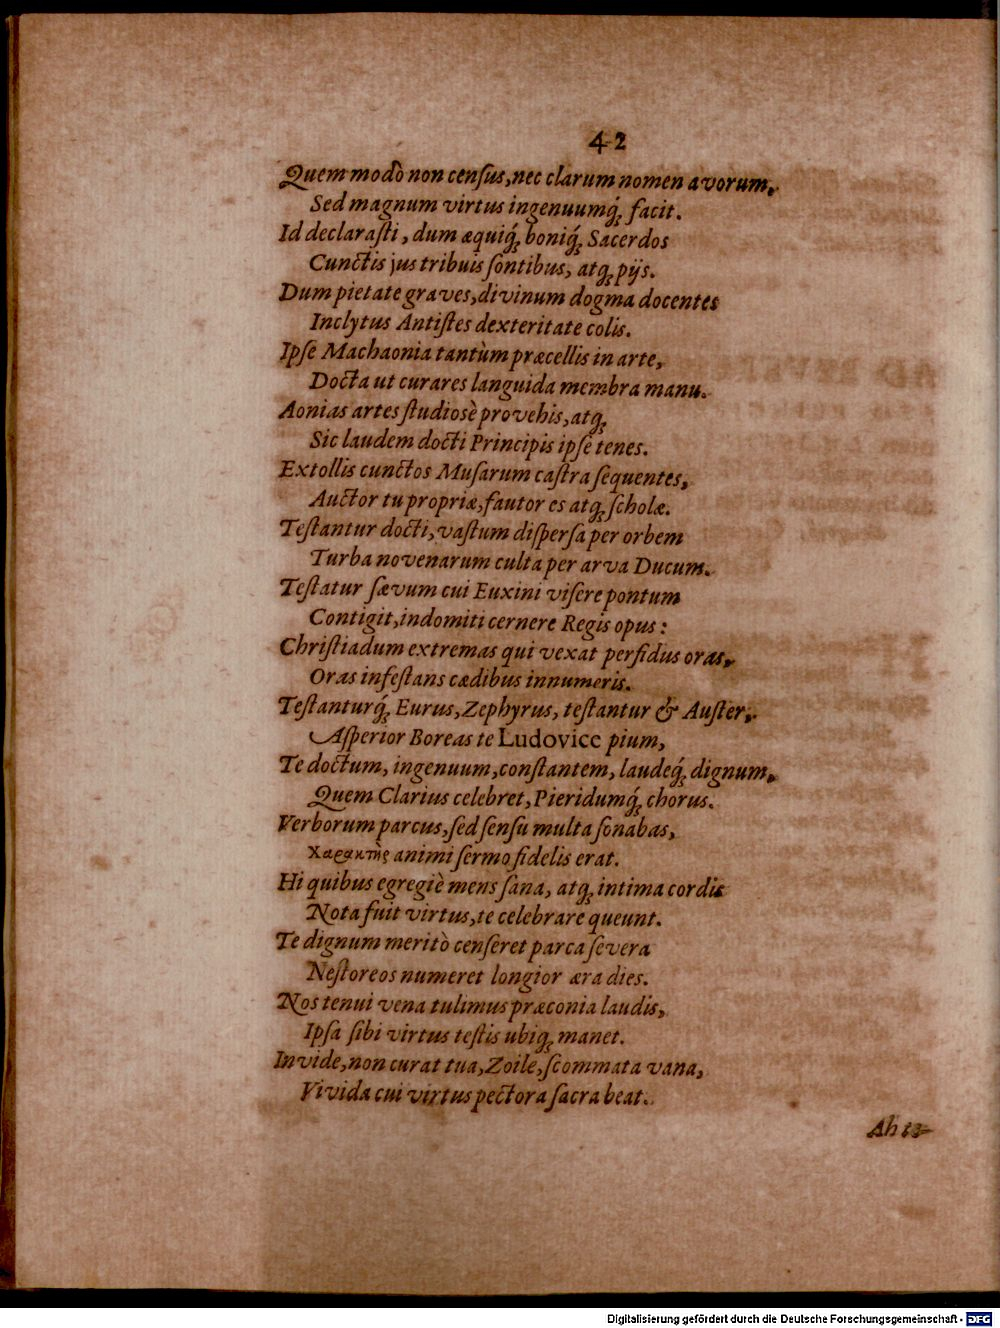 42
Quem modò non cenſus, nec clarum nomen avorum,
Sed magnum virtus ingenuumq́; facit.
Id declaraſti, dum æquiq́; boniq́; Sacerdos
Cunctis jus tribuis ſontibus, atq; pijs.
Dum pietate graves, divinum dogma docentes
Inclytus Antiſtes dexteritate colis.
Ipſe Machaonia tantùm præcellis in arte,
Docta ut curares languida membra manu.
Aonias artes ſtudiosè provehis, atq;
Sic laudem docti Principis ipſe tenes.
Extollis cunctos Muſarum caſtra ſequentes,
Auctor tu propriæ, fautor es atq; ſcholæ.
Teſtantur docti, vaſtum diſperſa per orbem
Turba novenarum culta per arva Ducum.
Teſtatur ſævum cui Euxini viſere pontum
Contigit, indomiti cernere Regis opus:
Chriſtiadum extremas qui vexat perfidus oras,
Oras infeſtans cædibus innumeris.
Teſtanturq́; Eurus, Zephyrus, teſtantur & Auſter,
Aſperior Boreas te Ludovice pium,
Te doctum, ingenuum, conſtantem, laudeq́; dignum,
Quem Clarius celebret, Pieridumq́; chorus.
Verborum parcus, ſed ſenſu multa ſonabas,
Χαρακτὴς animi ſermo fidelis erat.
Hi quibus egregiè mens ſana, atq; intima cordis
Nota fuit virtus, te celebrare queunt.
Te dignum meritò cenſeret parca ſevera
Neſtoreos numeret longior æra dies.
Nos tenui vena tulimus præconia laudis,
Ipſa ſibi virtus teſtis ubiq; manet.
Invide, non curat tua, Zoile, ſcommata vana,
Vivida cui virtus pectora ſacra beat.
Digitalisierung gefördert durch die Deutsche Forschungsgemeinschaft - DFG